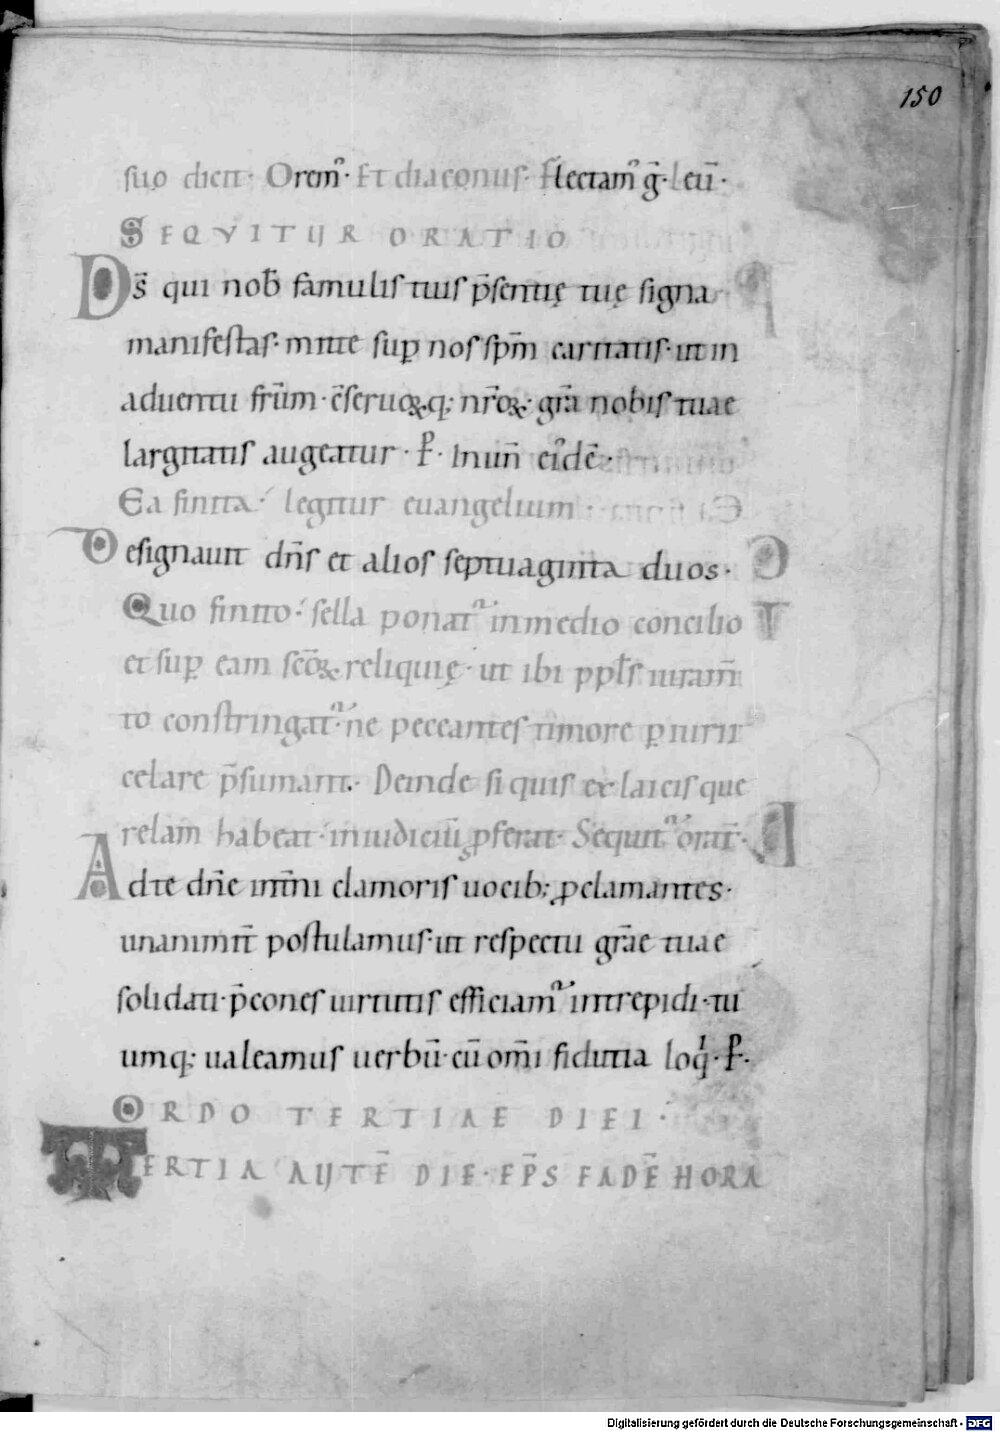 150
suo dicit· Orem᷒· Et diaconus· Flectam᷒ ḡ· Leū·
SEQVITUR ORATIO
Ds̄ qui nob̄ famulis tuis p̄sentię tuę signa
manifestas· mitte suꝑ nos sp̄m caritatis· ut in
aduentu fr̄um· c̄seruoꝝq; nr̄oꝝ· gr̄a nobis tuae
largitatis augeatur· P̄· In un̄ ei᷒dē·
Ea finita· legitur euangelium·
Designauit dn̄s et alios septuaginta duos·
Quo finito· sella ponat᷑ in medio concilio
et suꝑ eam sc̄oꝝ reliquię· ut ibi ppl̄s iuram̄
to constringat᷑· ne peccantes timore ꝑiurii
celare p̄sumant· Deinde si quis ex laicis que
relam habeat· in iudiciū ꝓferat· Sequnt᷑ orat̄·
Ad te dn̄e int̄ni clamoris uocib; ꝓclamantes·
unanimit̄ postulamus· ut respectu gr̄ae tuae
solidati· p̄cones uirtutis efficiam᷑ intrepidi· tu
umq; ualeamus uerbū· cū om̄i fiducia loqͥ· P̄·
ORDO TERTIAE DIEI·
TERTIA AUTĒ DIE· EP̄S EADĒ HORA
Digitalisierung gefördert durch die Deutsche Forschungsgemeinschaft - DFG